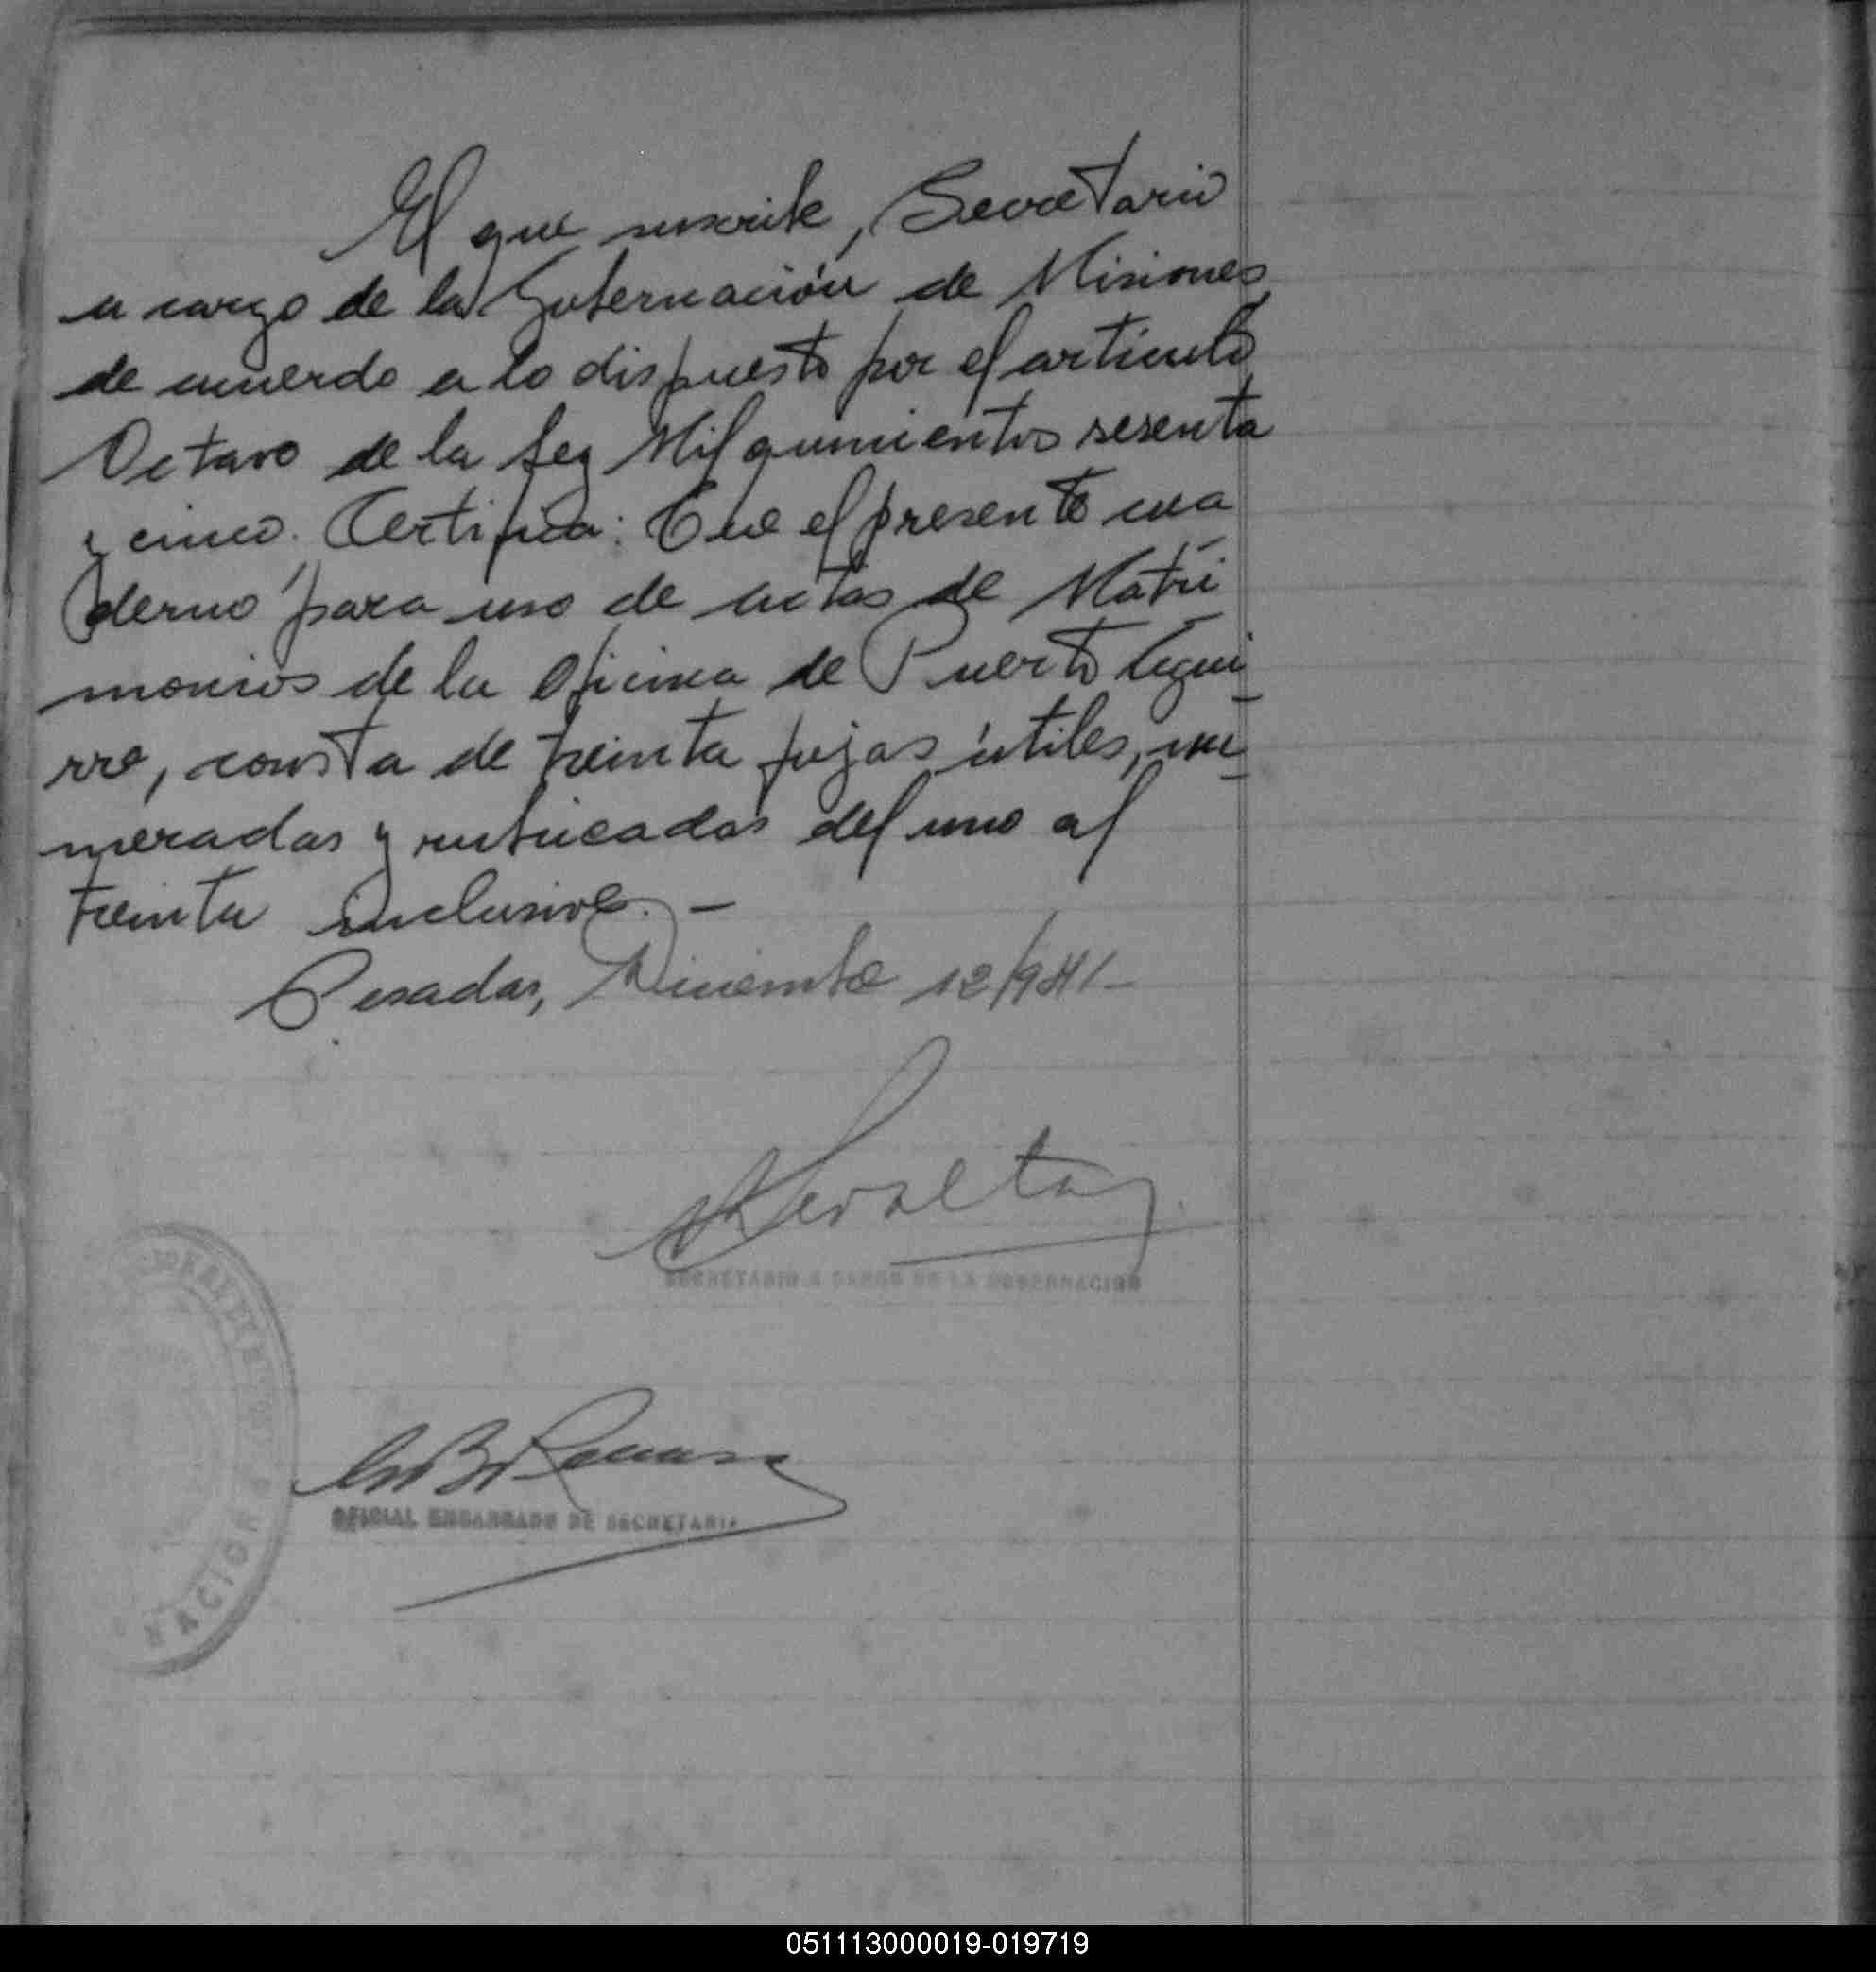 El que suscribe, Secretario
a cargo de la Gobernación de Misiones
de acuerdo a lo dispuesto por el artículo
Octavo de la Ley Mil quinientos sesenta
y cinco. Certifica: Que el presente cua
derno para uso de actas de Matri
monios de la Oficina de Puerto Agui
rre, consta de treinta fojas útiles, nu
meradas y rubricadas del uno al
treinta inclusive. -
Posadas, Diciembre 12/941-
Peralta
SECRETARIO A CARGO DE LA GOBERNACION
OFICIAL ENCARGADO DE SECRETARIA
NACION
051113000019-019719